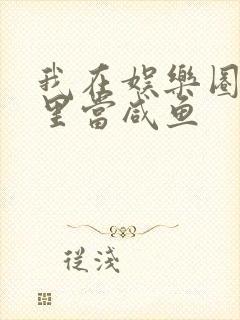 我在娱樂圈
里當咸鱼
從淺